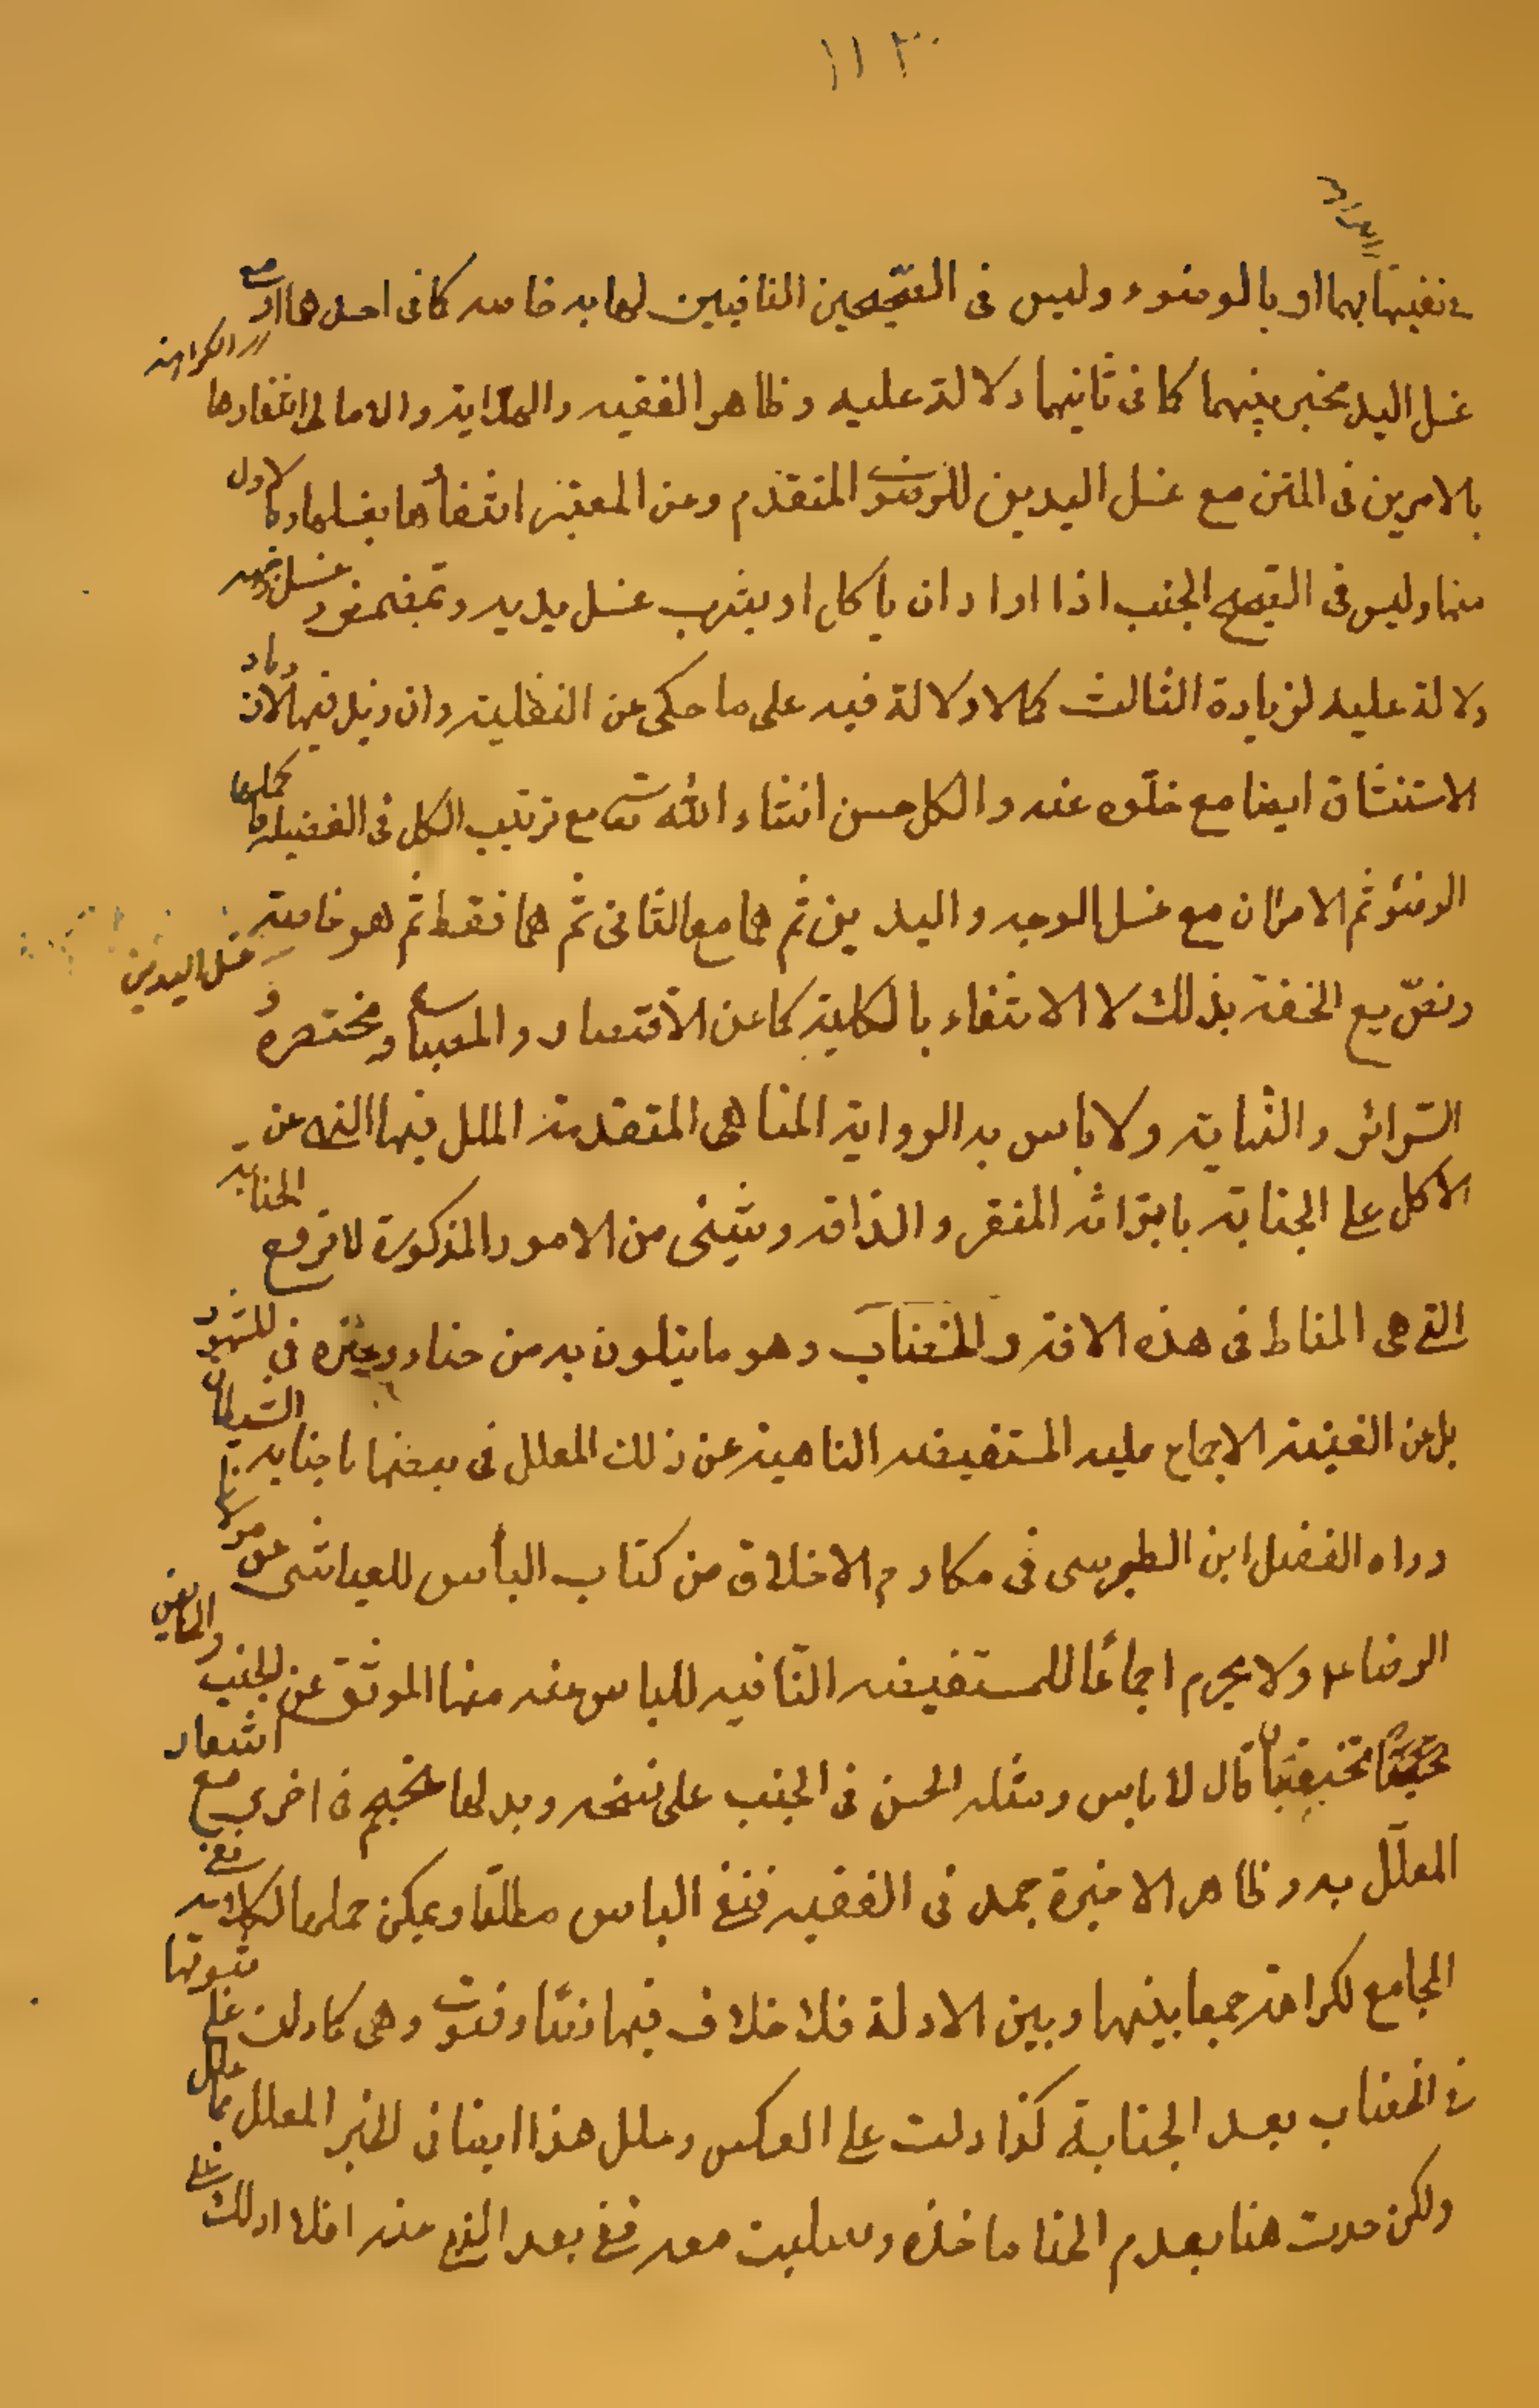 في نفيها بهما او بالوضوء وليس في الصحيحين النافيين لها به خاصه كما في احدهما او مع
غسل اليد مخير بينهما كما في ثانيهما دلالة عليه وظاهر الفقيه والهداية والامالي انتفاءها
الكراهة
بالامرين في المتن مع غسل اليدين للرضوي المتقدم وعن المعتبر انتفاؤها بغسلهما ولا دل
منهما وليس في الصحيح الجنب اذا اراد ان ياكل او يشرب غسل يديه وتمضمض و غسل وجهه
دلالة عليه لزيادة الثالث كما لا دلالة فيه على ما حكى عن النفلية وان زيد فيها
الاستنشاق ايضا مع خلوه عنه والكل حسن انشاء الله تعالى مع ترتيب الكل في الفضيلة
الوضوء ثم الامران مع غسل الوجه واليدين ثم هما مع الثاني ثم هما فقط ثم هو خاصة
غسل اليدين
بذلك لا الانتفاء بالكلية كما عن الاقتصاد والمصباح ومختصره و
السرائر والنهاية ولا باس به الرواية المناهي المتقدمة المعلل فيها النهي عن
الاكل على الجنابة بايراثه الفقر والذاقه وشيئ من الامور المذكورة لا ترفع الجنابة
التي هي المناط في هذه الافة والخضاب وهو ما يتلون به من حناء وغيره في المشهور
بل عن الغنية الاجماع عليه المستفيضه الناهية عن ذلك المعلل في بعضها باصابة الشيطان
رواه الفضل ابن الطبرسي في مكارم الاخلاق من كتاب اللباس للعياشي عن مولانا
الرضا ع ولا يحرم اجماعًا للمستفيضه النافيه للباس عنه منها الموثق عن الجنب والحايض
يختضبان قال لا باس ومثله الحسن في الجنب على نسخه وبدلها يحتجم في اخرى مع اشعار
المعلل به وظاهر الاخيرة جمد في الفقيه فنفى الباس مطلقا ويمكن حملها
الجامع لكراهة جمعا بينها وبين الادلة فلا خلاف فيها نصًا وفتوى وهي كما دلت على ثبوتها
في الخضاب بعد الجنابة كذا دلت على العكس وعلل هذا ايضا في الخبر المعلل بما علل
ولكن هنا بعدم الحنا ماخذه معه ففي بعد النهي عنه افلا ادلك على